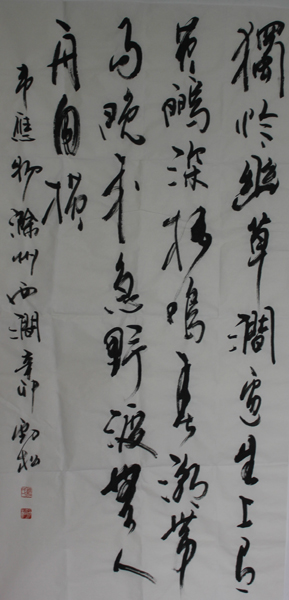 獨怜幽草澗邊生上有
黄鸝深树鳴春潮帶
雨晚来急野渡無人
舟自横
韋應物滁州西澗辛卯劉松